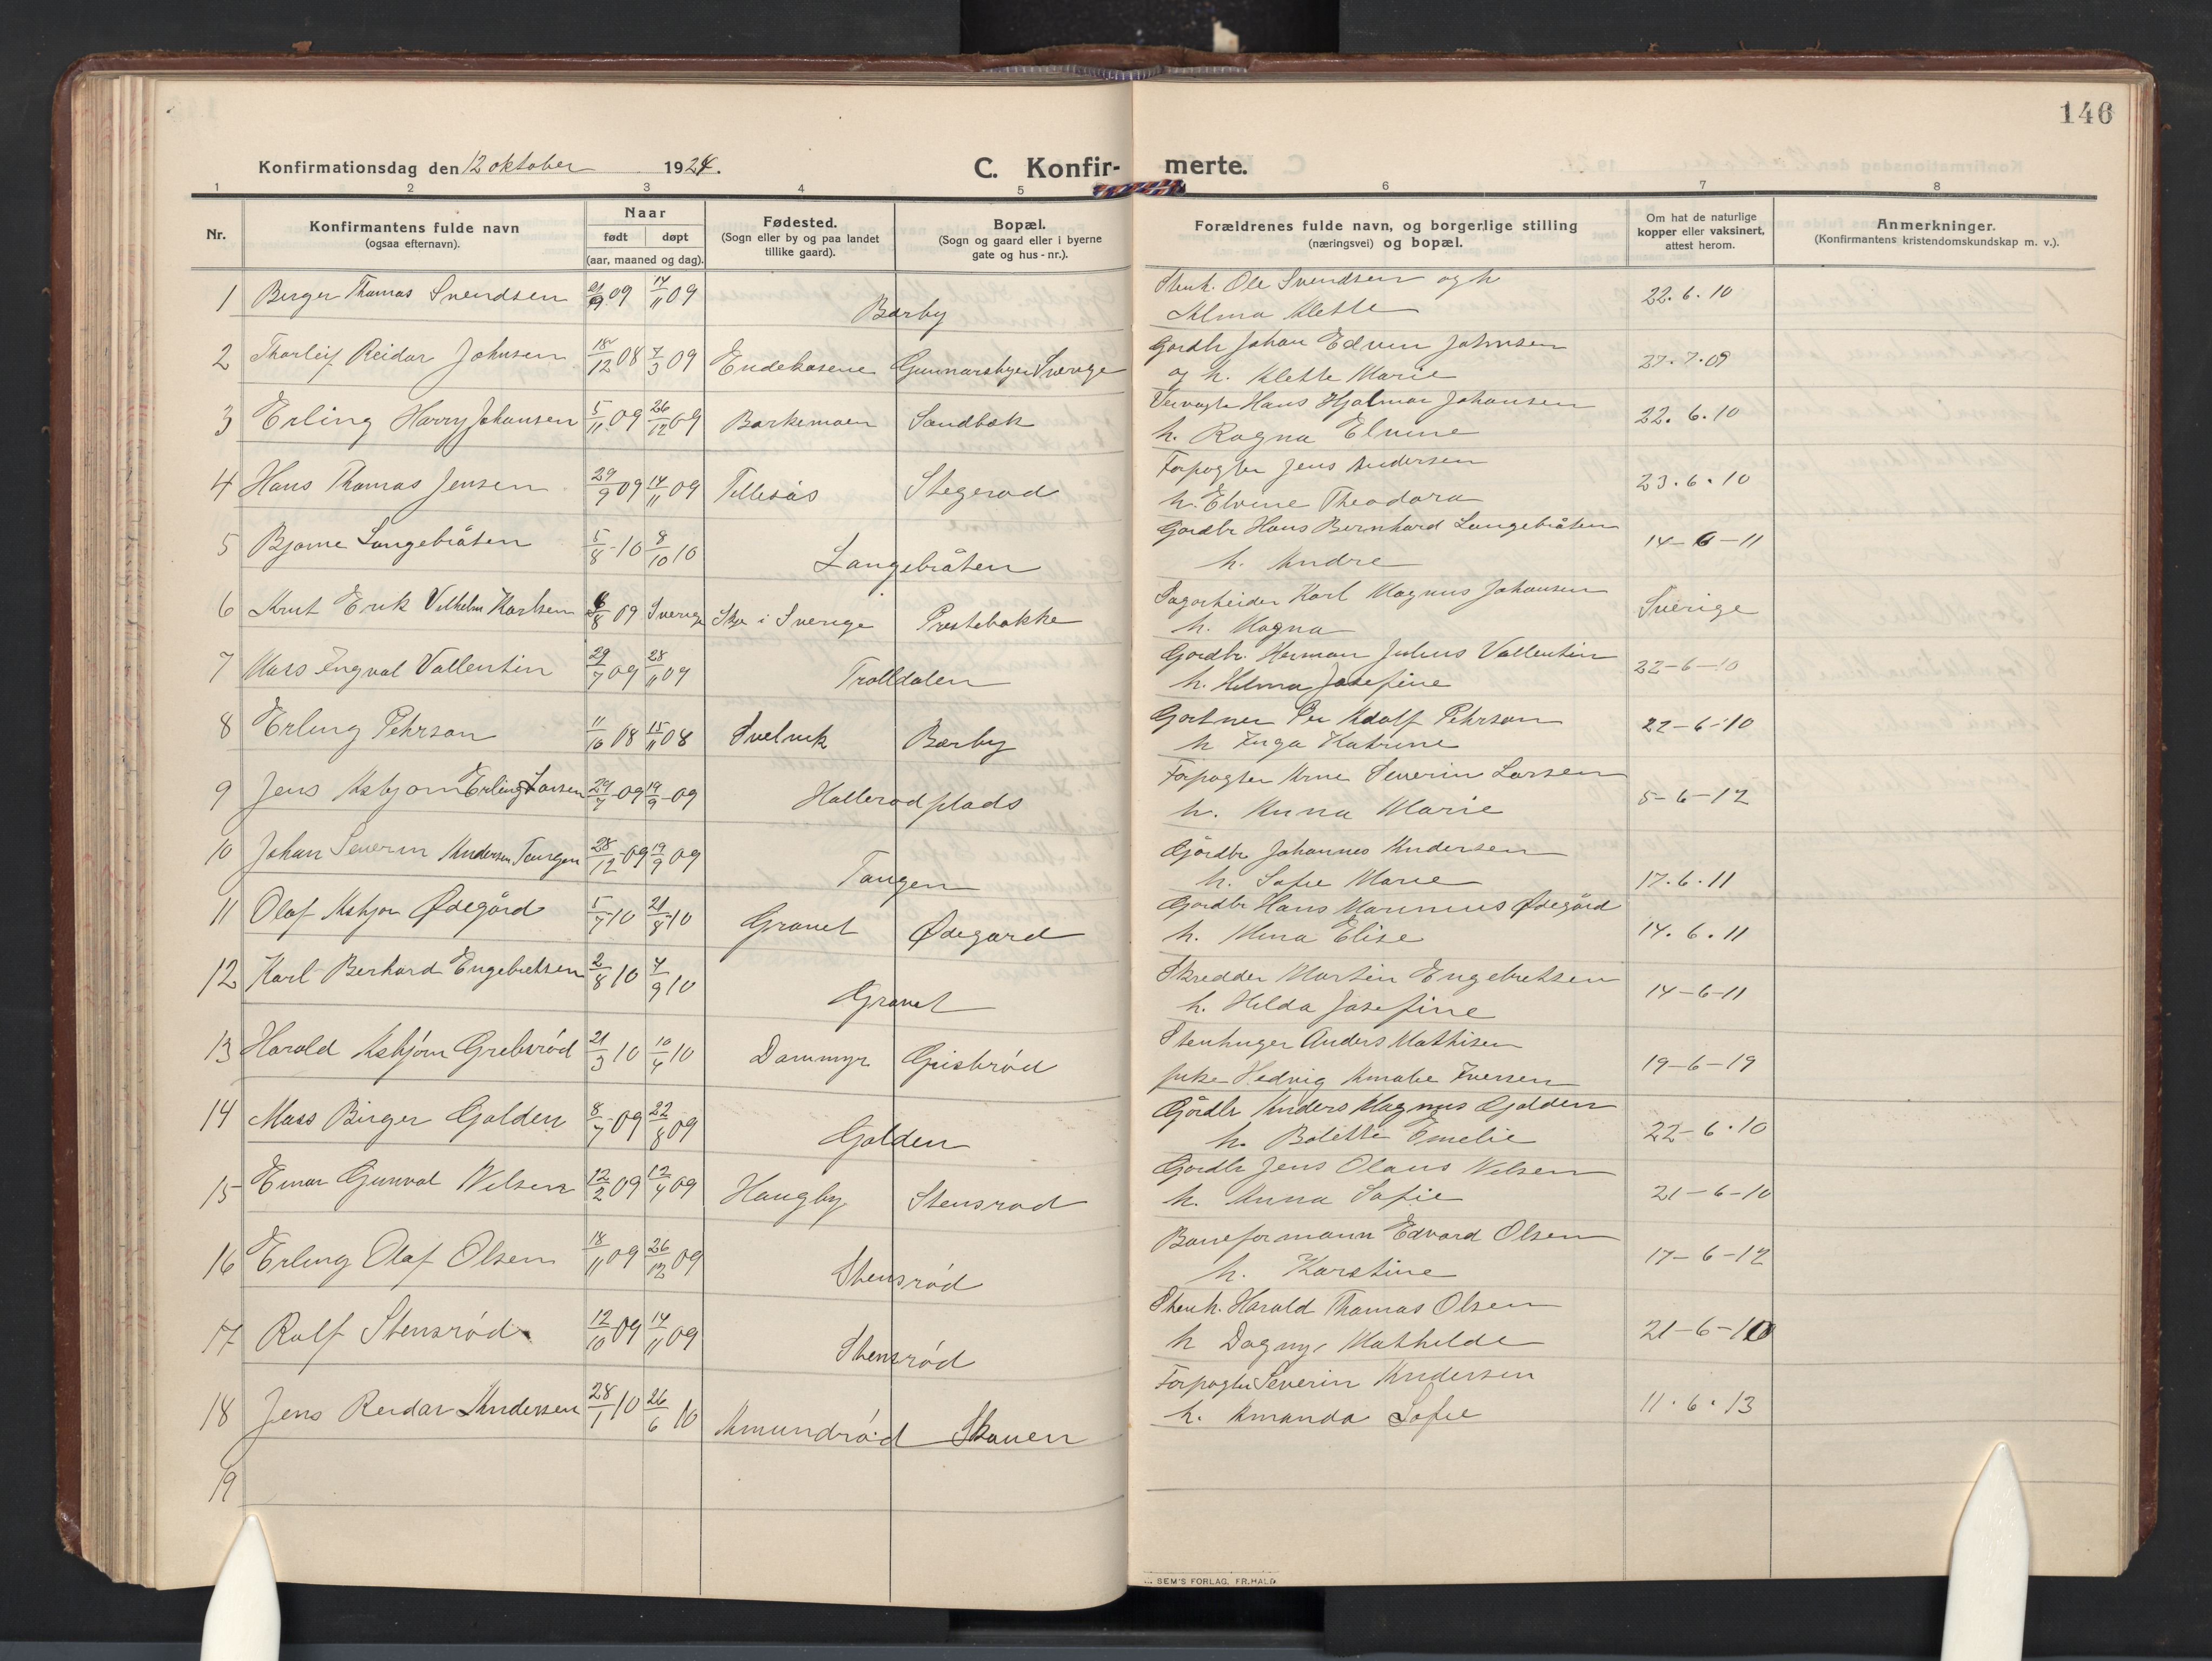 146
Konfirmationsdag den 12 oktober 1924. C. Konfir- merte.
1 2 3 4 5 6 7 8
Nr. Konfirmantens fulde navn (ogsaa efternavn). Naar født døpt (aar, maaned og dag). Fødested. (Sogn eller by og paa landet tillike gaard). Bopæl. (Sogn og gaard eller i byerne gate og hus-nr.). Forældrenes fulde navn, og borgerlige stilling (næringsvei) og bopæl. Om hat de naturlige kopper eller vaksinert, attest herom. Anmerkninger. (Konfirmantens kristendomskundskap m. v.).
1 Birger Thomas Svendsen 09 14/11 09 Barby Stenh. Ole Svendsen og h 22.6.10
Alma Alette
2 Thorleif Reidar Johnsen 18/12 08 7/3 09 Endekasene Gunnarsbyen Sverige Gardbr Johan Edvin Johnsen 27.7.09
og h. Alette Marie
3 Erling Harry Johansen 5/11 09 26/12 09 Barkemoen Sandbæk Veivogter Hans Hjalmar Johansen 22.6.10
h. Ragna Elvine
4 Hans Thomas Jensen 29/9 09 14/11 09 Tillesås Stegerød Forpagter Jens Andersen 23.6.10
h. Elvine Theodora
5 Bjarne Langebråten 5/8-10 8/10 10 Langebråten Gardbr Hans Bernhard Langebråten 14-6-11
h. Andre
6 Knut Erik Vilhelm Karlsen 6/8 09 Sverige Skee i Sverige Prestebakke Sagarbeider Karl Magnus Johansen Sverige
h. Magna
7 Mass Ingval Vallentin 29/7 09 28/11 09 Trolldalen Gårdbr. Herman Julius Vallentin 22-6-10
h. Hilma Josefine
8 Erling Pehrson 11/10 08 15/11 08 Svelvik Barby Gartner Per Adolf Pehrson 22-6-10
h Inga Katrine
9 Jens Asbjorn Erling Larsen 29/7-09 19/9-09 Hallerød plads Forpagter Arne Severin Larsen 5-6-12
h. Anna Marie
10 Johan Severin Andersen Tangen 28/12-09 19/9 09 Tangen Gårdbr Johannes Andersen 17.6.11
h. Sofie Marie
11 Olaf Asbjor Ødegård 5/7-10 21/8-10 Gravet Ødegard Gardbr Hans Marinius Ødegård 14.6.11
h. Mina Elise
12 Karl Berhard Engebretsen 2/8 10 4/9 10 Gravet Skredder Martin Engebretsen 14-6-11
h. Hilda Josefine
13 Harald Asbjörn Grebsrød 21/3 10 10/4 10 Dammyr Grisbrød Stenhuger Anders Mathisen 19-6-19
pike Hedvig Amalie Iversen
14 Mass Birger Galden 8/7-09 22/8 09 Galden Gårdbr Anders Magnus Galden 22-6.10
h. Bolette Emelie
15 Einar Gunval Nilsen 12/2 09 12/4 09 Haugby Stensrød Gardbr Jens Olaus Nilsen 21-6-10
h. Anna Sofie
16 Erling Olaf Olsen 18/11 09 26/12 09 Stensrød Baneformann Edvard Olsen 17-6-12
h. Karstine
17 Rolf Stensrød 12/10-09 14/11 09 Stensrød Stenh. Harald Thomas Olsen 21-6-10
h Dagny Mathilde
18 Jens Reidar Andersen 28/1 10 26/6 10 Amundrød Skauen Forpagter Severin Andersen 11.6.13
h. Amanda Sofie
19
SEM'S FORLAG, FR.HALD